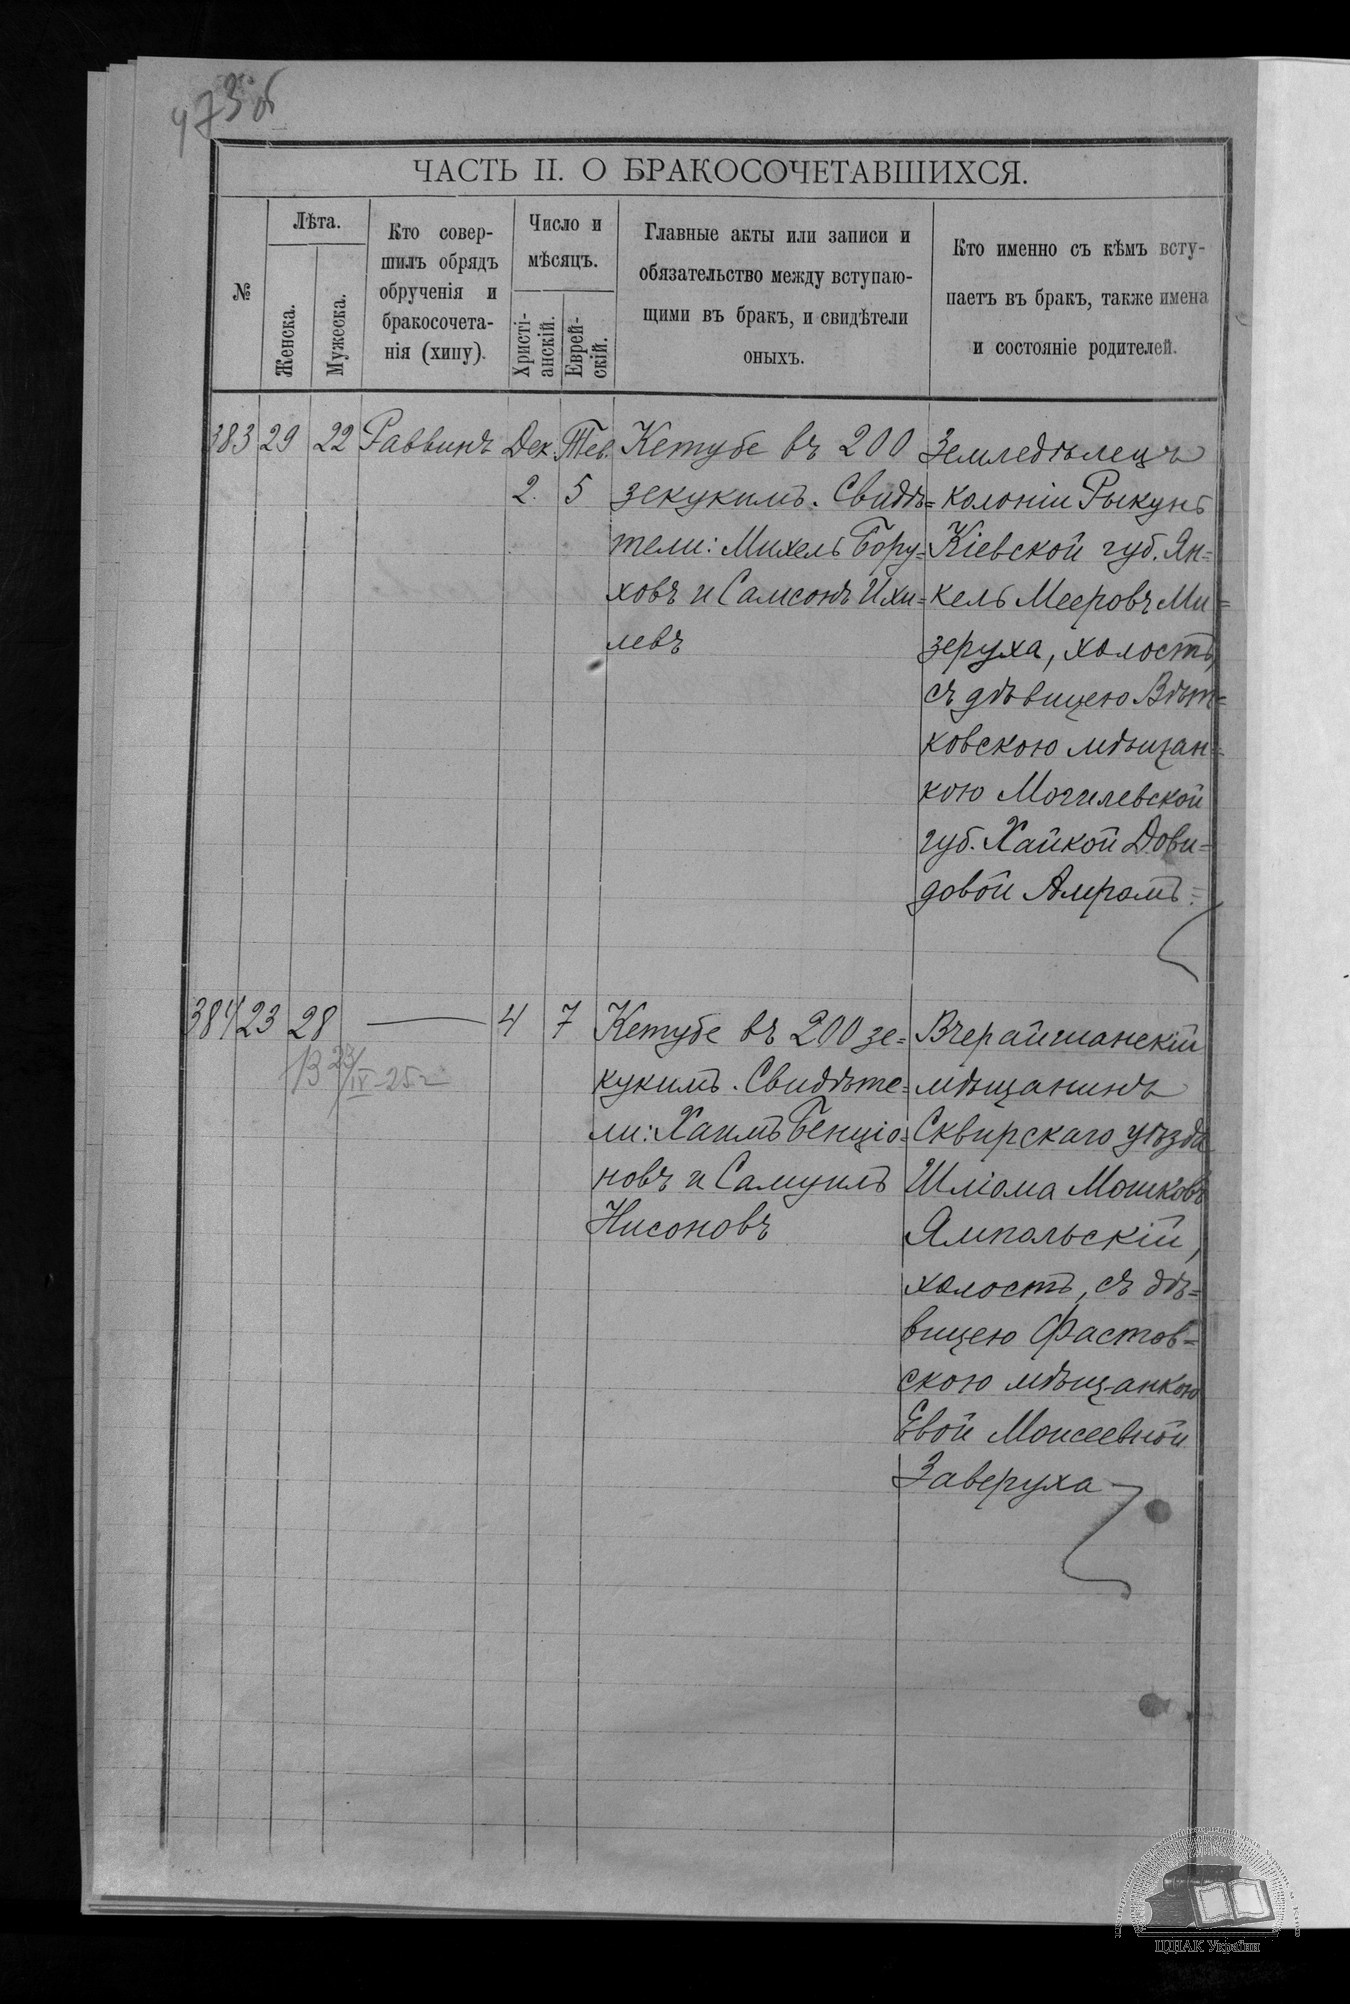 473об
ЧАСТЬ II. О БРАКОСОЧЕТАВШИХСЯ.
№
Лѣта.
Женска.
Мужеска.
Кто совер-
шилъ обрядъ
обрученія и
бракосочета-
нія (хипу).
Число и
мѣсяцъ.
Христі-
анскій.
Еврей-
скій.
Главные акты или записи и
обязательство между вступаю-
щими въ бракъ, и свидѣтели
оныхъ.
Кто именно съ кѣмъ всту-
паетъ въ бракъ, также имена
и состояніе родителей.
383
29
22
Раввинъ
Дек.
2.
Тев.
5
Кетубе въ 200
зекукимъ. Свидѣ=
тели: Михель Бору=
ховъ и Самсонъ Ихи=
левъ
Земледѣлецъ
колоніи Рыкунь
Кіевской губ. Ян=
кель Мееровъ Ми=
зеруха, холостъ,
съ дѣвицею Вѣт=
ковскою мѣщан=
кою Могилевской
губ. Хайкой Дови=
довой Амромъ.
384
23
28
В 23/IV-25г
4
7
Кетубе въ 200 зе=
кукимъ. Свидѣте=
ли: Хаимъ Бенціо=
новъ и Самуилъ
Нисоновъ
Вчерайшанскій
мѣщанинъ
Сквирскаго уѣзда
Шліома Мошковъ
Ямпольскій,
холостъ, съ дѣ=
вицею Фастов=
скою мѣщанкою
Евой Моисеевной
Заверуха
ЦДІАК України